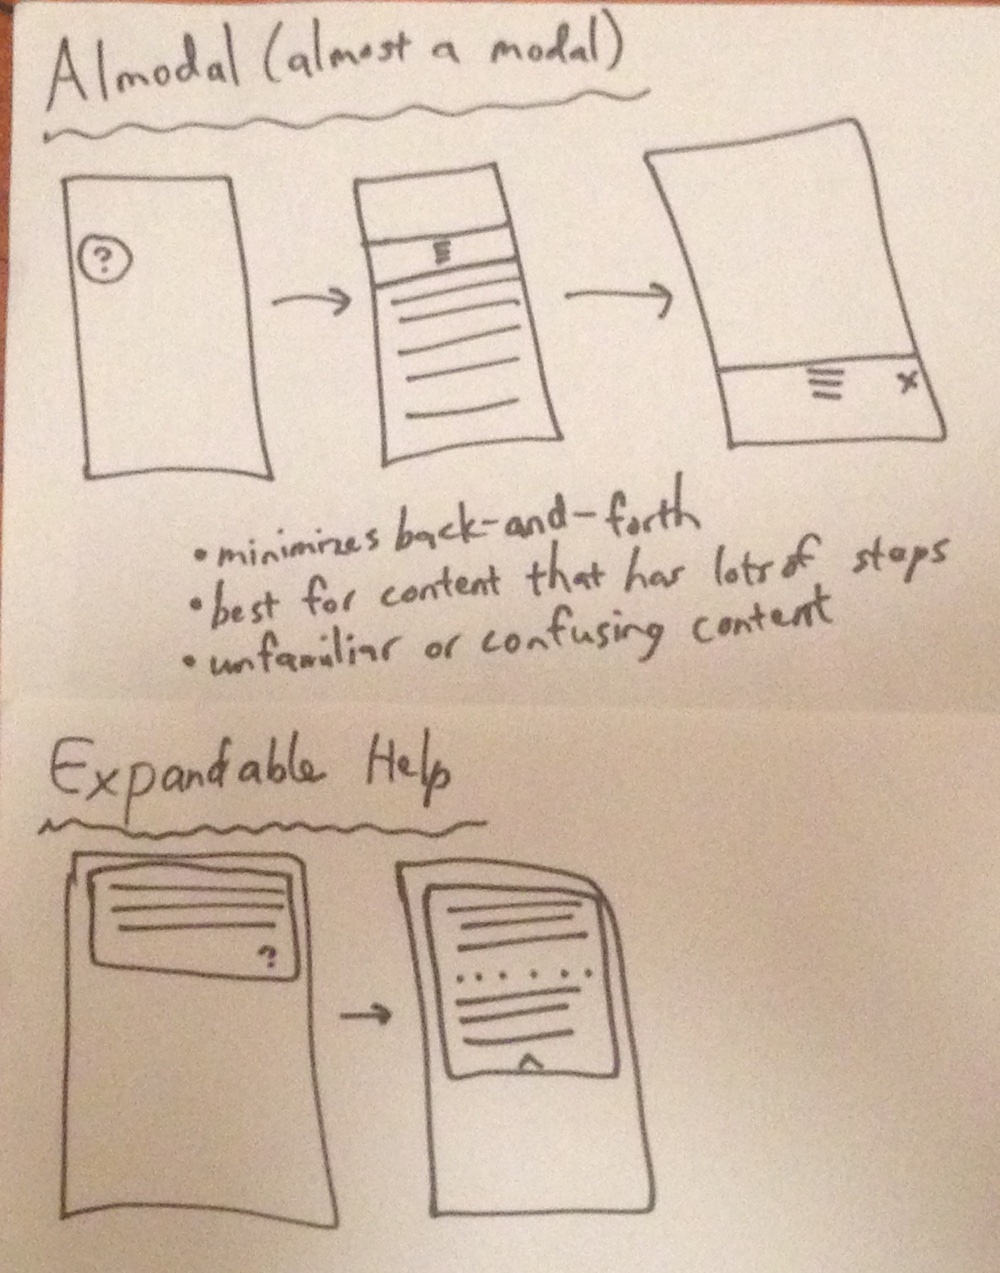 Almodal (almost a modal)
?
x
• minimizes back-and-forth
• best for content that has lots of steps
• unfamiliar or confusing content
Expandable Help
?